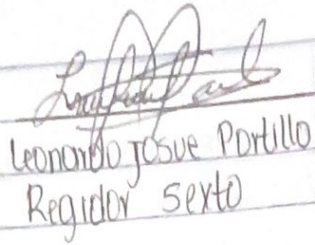 Leonardo Josue Portillo
Regidor sexto